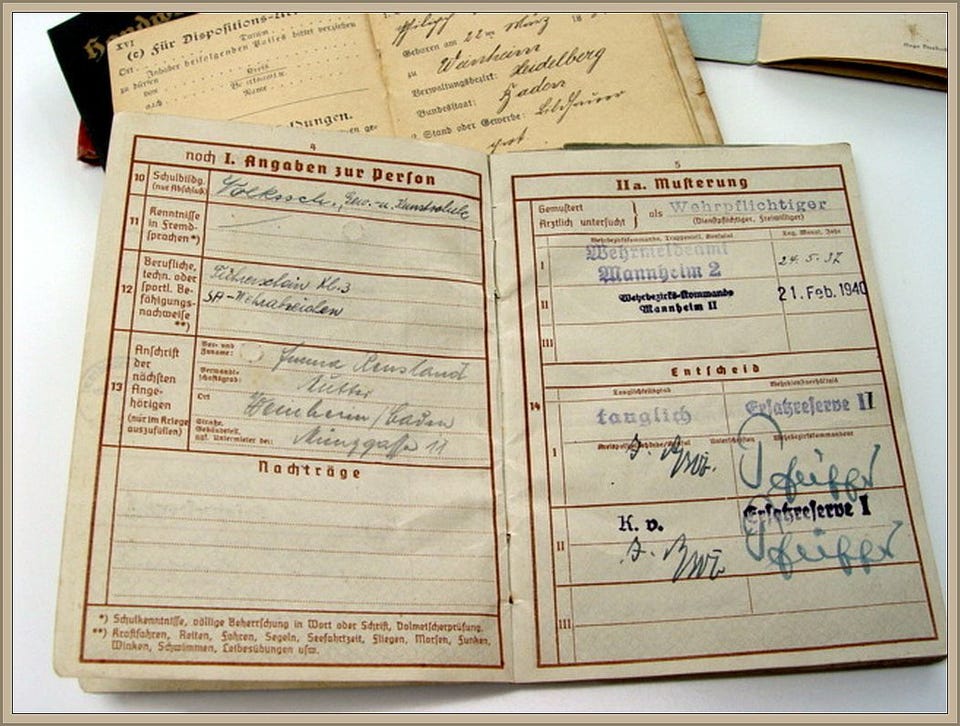 Handw
XVI
(c) Für Dispositions-
Datum
Ort
Inhaber beifolgenden Passes bittet verziehen
zu dürfen
von
nach
Kreis
Name
dungen.
Philipp
Geboren am 22ten März 18
zu Weinheim
Verwaltungsbezirk: Heidelberg
Bundesstaat: Baden
2. Stand oder Gewerbe: Bildhauer
4
noch I. Angaben zur Person
10 Schulbildg. (nur Abschluß) Volkssch., Gew.- u. Kunstschule
11 Kenntnisse in Fremdsprachen *)
12 Berufliche, techn. oder sportl. Befähigungsnachweise **)
Führerschein Kl. 3
SA-Wehrabzeichen
13 Anschrift der nächsten Angehörigen (nur im Kriege auszufüllen)
Vor- und Zuname: Emma
Verwandtschaftsgrad: Mutter
Ort Weinheim/Baden
Straße, Gebäudeteil, ggf. Untermieter bei: Münzgasse 11
Nachträge
*) Schulkenntnisse, völlige Beherrschung in Wort oder Schrift, Dolmetscherprüfung.
**) Kraftfahren, Reiten, Fahren, Segeln, Seefahrtzeit, Fliegen, Morsen, Funken,
Winken, Schwimmen, Leibesübungen usw.
5
IIa. Musterung
Gemustert
Ärztlich untersucht } als Wehrpflichtiger
(Dienstpflichtiger, Freiwilliger)
Wehrbezirkskommando, Truppenteil, Tag, Monat, Jahr
I Wehrmeldeamt
Mannheim 2 24.5.37
II Wehrbezirks-Kommando
Mannheim II 21. Feb. 1940
III
Entscheid
14 Tauglichkeitsgrad Wehrdienstverhältnis
tauglich Ersatzreserve II
Unterschrift Wehrbezirkskommandeur
I
K. v. Ersatzreserve I
II
III